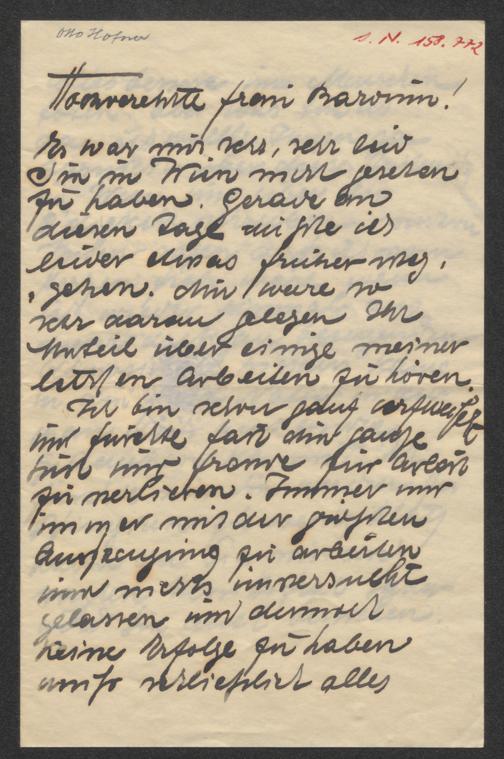 Otto Hofner
I. N. 158.772
Hochverehrte Frau Baronin!
Es war mir sehr, sehr leid
Sie in Wien nicht gesehen
zu haben. Gerade an
diesen Tage mußte ich
leider etwas früher weg-
gehen. Mir wäre so
sehr daran gelegen Ihr
Urteil über einige meiner
letzten Arbeiten zu hören.
Ich bin schon ganz verzweifelt
und fürchte fast die ganze
Lust und Freude für Arbeit
zu verlieren. Immer und
immer mit der größten
Überzeugung zu arbeiten
und nichts unversucht
gelassen und dennoch
keine Erfolge zu haben
muß schließlich alles